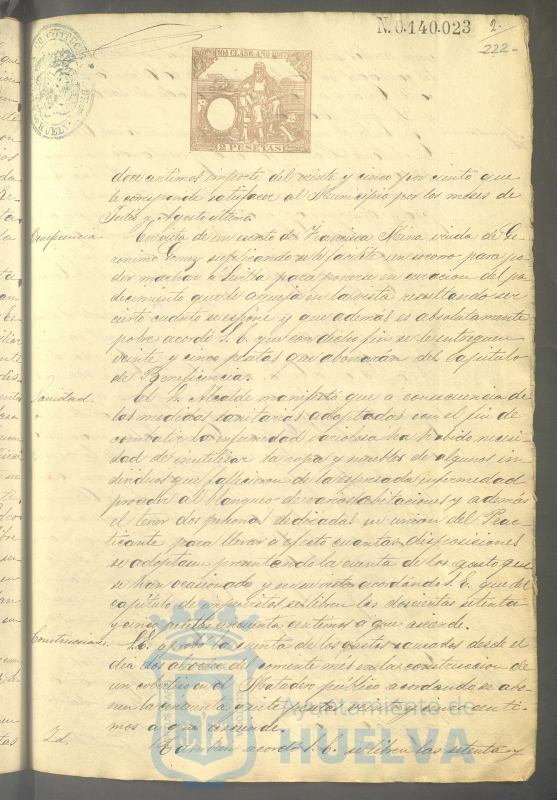 N. 0.140.023 2.
222-
10ª CLASE-AÑO 1887
2 PESETAS
doce centimos importe del veinte y cinco por ciento que
le corresponde satisfacer al Municipio por los meses de
Julio y Agosto ultimo.
Beneficencia En vista de un escrito de Francisca Mena viuda de Ge-
ronimo Gomez suplicando se le facilite un socorro para po
der marchar á Sevilla para ponerse en curacion del pa
decimiento que le aqueja en la vista resultando ser
cierto cuanto se expone y que ademas es absolutamente
pobre acordó S. E. que con dicho fin se le entreguen
veinte y cinco pesetas que se abonarán del capitulo
de Beneficencia.
Sanidad. El Sr. Alcalde manifestó que a consecuencia de
las medidas sanitarias adoptadas con el fin de
combatir la enfermedad variolosa ha habido necesi
dad de inutilizar la ropa y muebles de algunos in
dividuos que fallecieron de la expresada enfermedad
proceder al blanqueo de varias habitaciones y ademas
el tener dos personas dedicadas en union del Prac-
ticante para llevar a efecto cuantas disposiciones
se adoptaron presentando la cuenta de los gastos que
se han ocasionado y en su vista acordó S. E. que del
capitulo de imprevistos se libren las doscientas setenta
y cinco pesetas cincuenta centimos a que asciende.
Construccion. S. E. aprobó la cuenta de los gastos causados desde el
dia dos al doce del corriente mes en la construccion de
un cobertizo en el Matadero público acordando se abo-
nen la cincuenta y siete pesetas centi
mos a que asciende.
Id. Tambien acordó S. E. se libren las setenta y
Ayuntamiento de
HUELVA